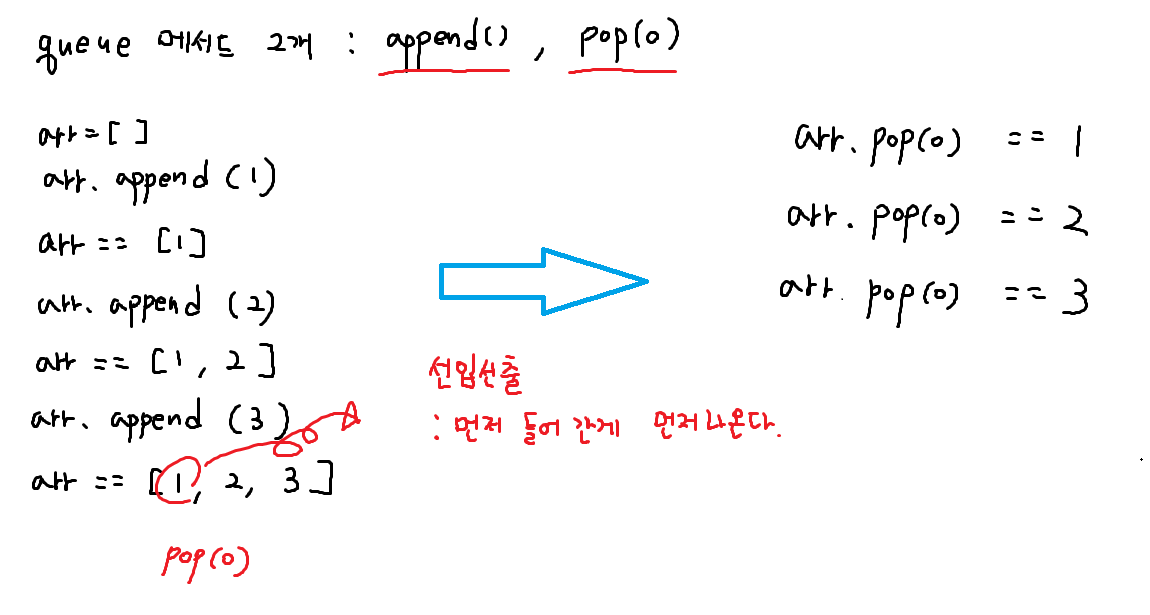 queue 메서드 2개 : append() , pop(0)
arr = [ ]
arr. append (1)
arr == [1]
arr. append (2)
arr == [1, 2]
arr. append (3)
arr == [1, 2, 3]
pop(0)
선입선출
: 먼저 들어 간게 먼저나온다.
arr. pop(0) == 1
arr. pop(0) == 2
arr. pop(0) == 3